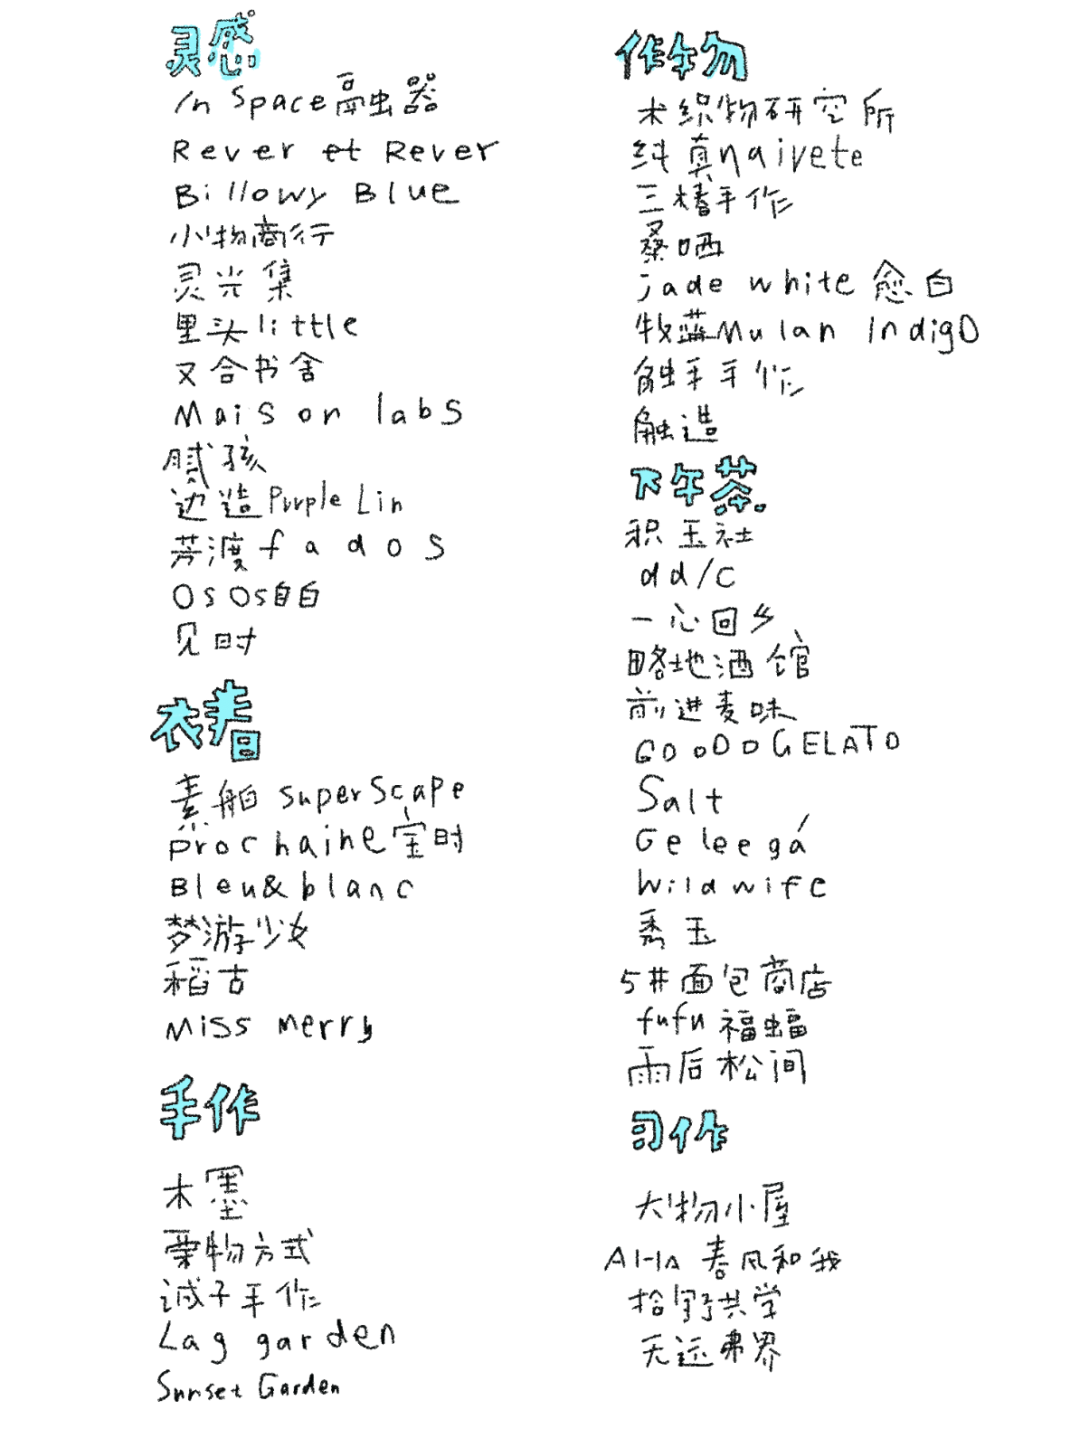 灵感
In Space融虫器
Rever et Rever
Billowy Blue
小物商行
灵光集
里头little
又合书舍
Maison labs
腻孩
边造Purple Lin
芳渡fados
OSOS自白
见时
衣着
素舶superScape
prochaine宝时
Bleu&blanc
梦游少女
稻古
Miss merry
手作
木墨
栗物方式
诚子手作
Lag garden
Sunset Garden
作物
术织物研究所
纯真naivete
三楮手作
桑晒
jade white愈白
牧蓝Mulan IndigO
触手手作
融造
下午茶
积玉社
dd/c
一心回乡
略地酒馆
前进麦味
GOoOD GELATO
Salt
Geleegá
Wildwife
秀玉
5#面包商店
fufu福蝠
雨后松间
习作
大物小屋
AHA春风和我
拾野共学
无远弗界